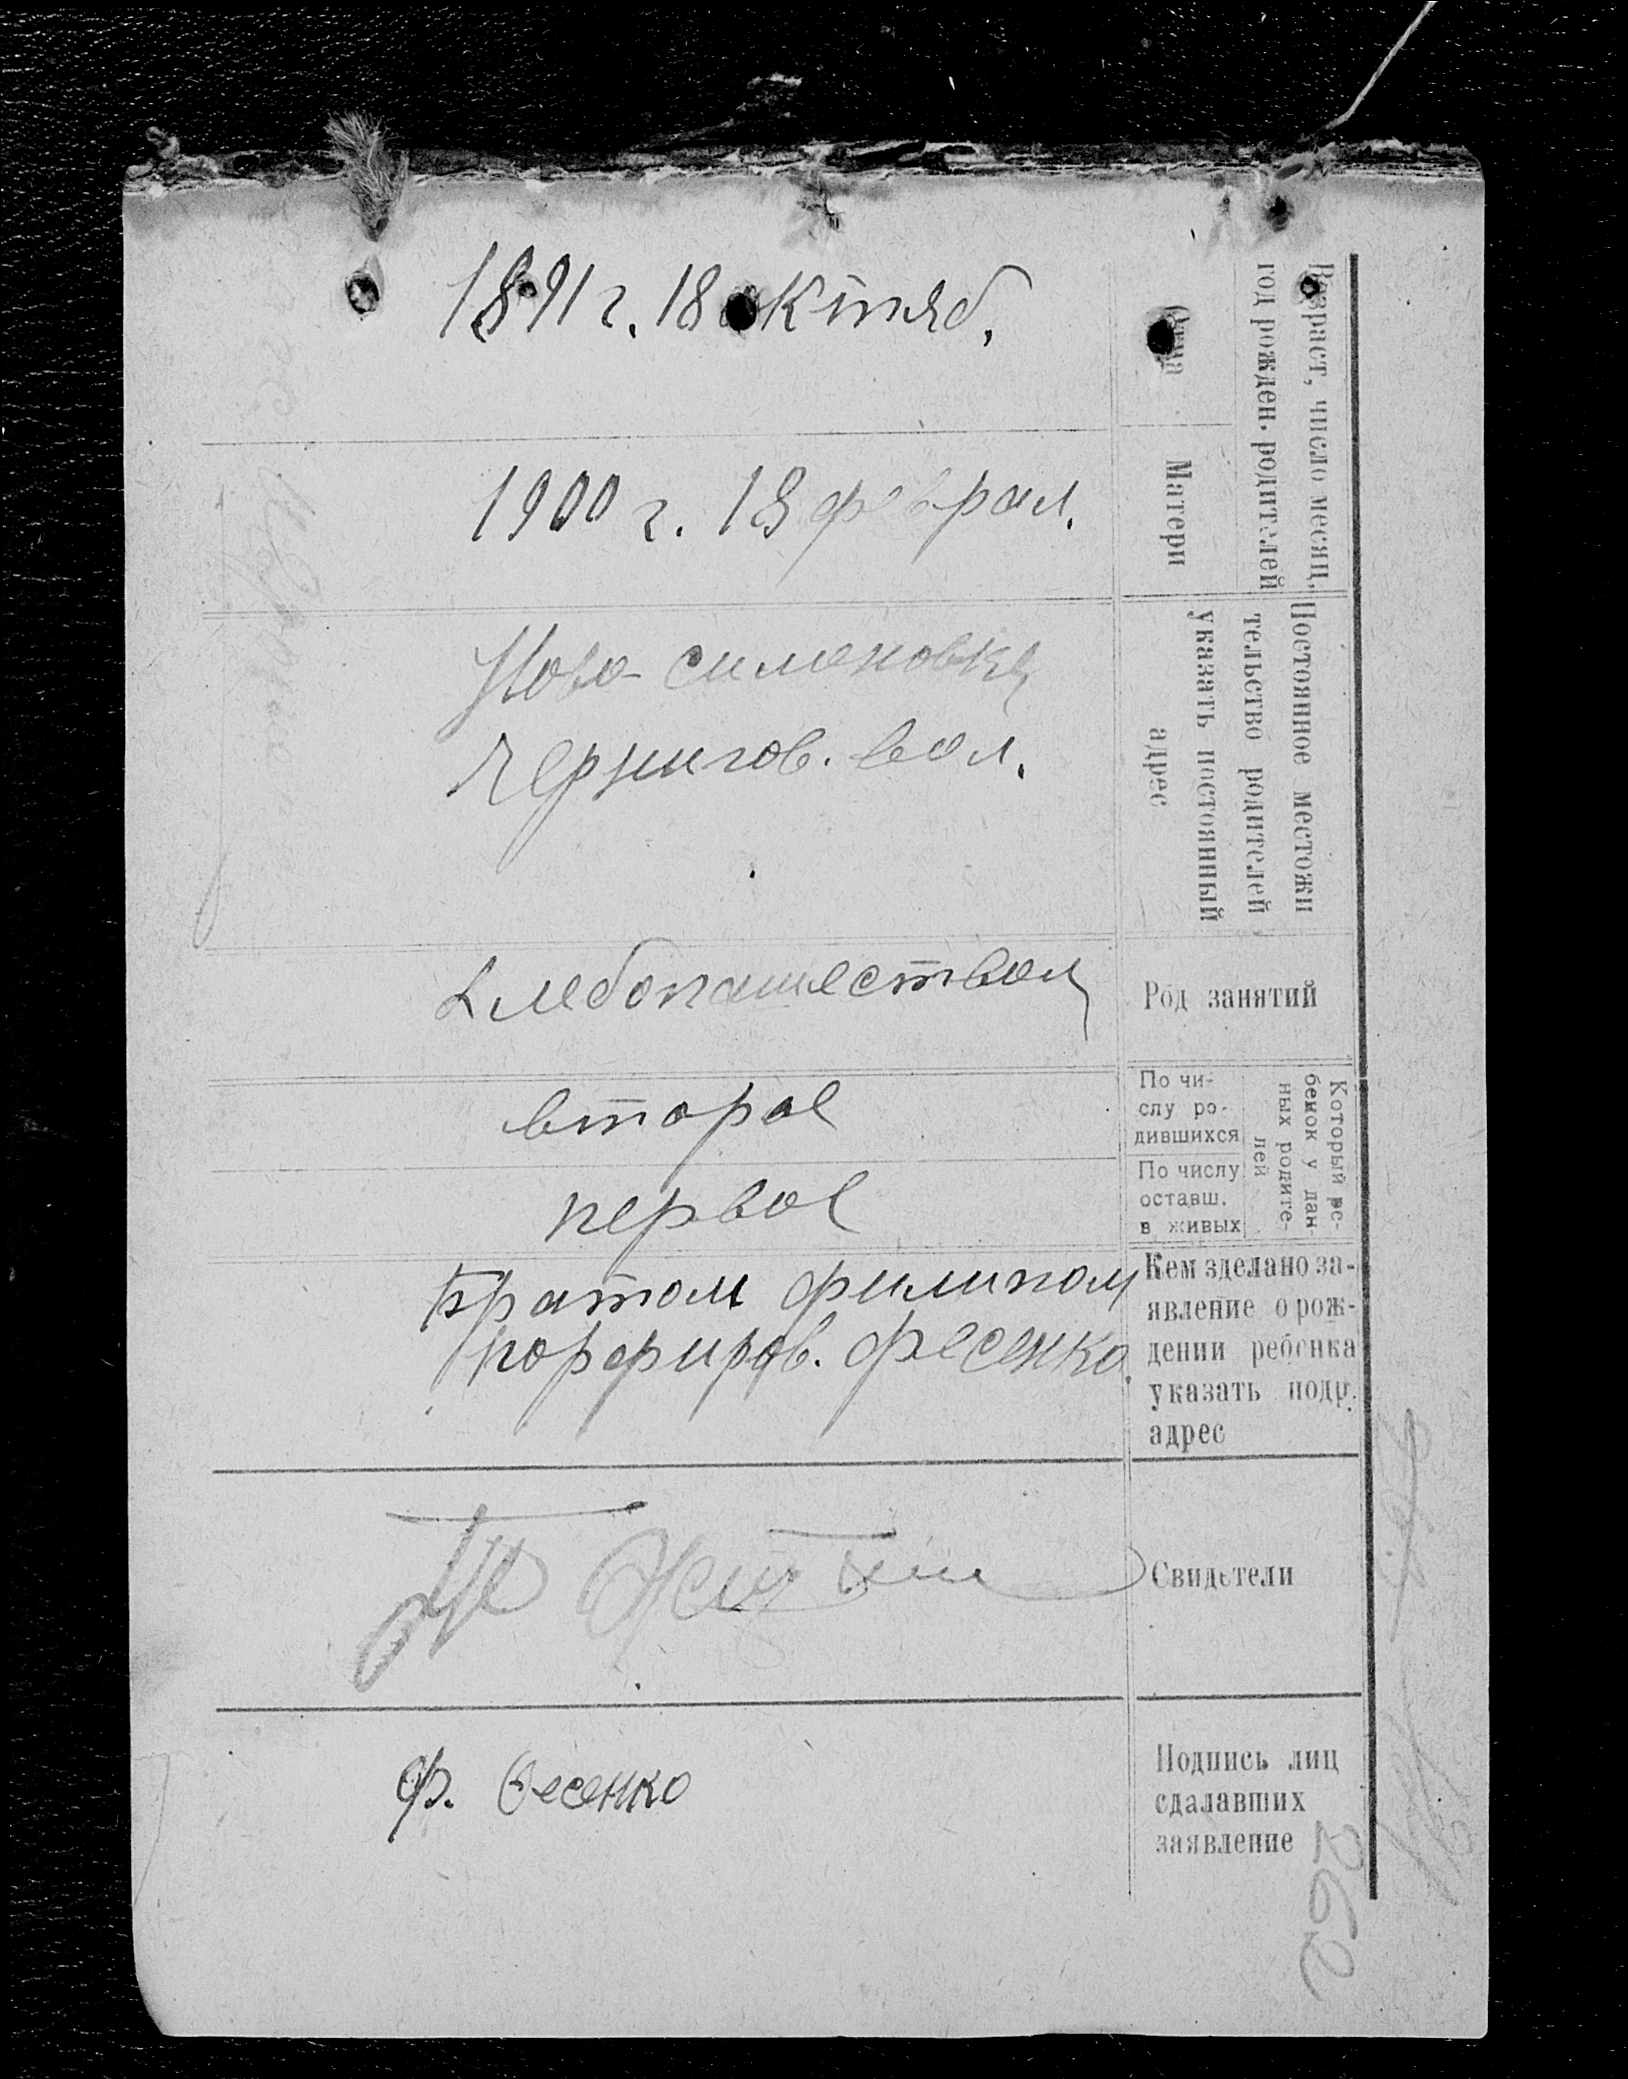 Возраст, число месяц,
год рожден. родителей
Отца
1891 г. 18 октяб.
Матери
1900 г. 18 феврал.
Постоянное местожи
тельство родителей
указать постоянный
адрес
Ново-симоновка
Чернигов. вол.
Род занятий
хлебопашеством
Который ре-
бенок у дан-
ных родите-
лей
По чи-
слу ро-
дившихся
второе
По числу
оставш.
в живых
первое
Кем зделано за-
явление о рож-
дении ребенка
указать подр.
адрес
Братом филипом
порфиров. фесенко.
Свидетели
Подпись лиц
сдалавших
заявление
Ф. Фесенко
262